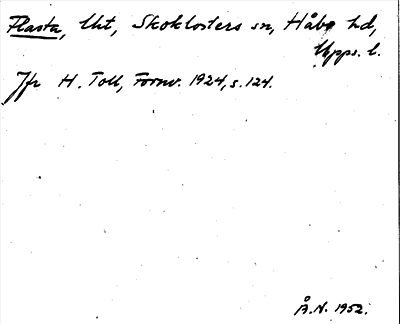 Flasta, Utt, Skoklosters sn, Håbo hd,
Upps. l.
Jfr H. Toll, Fornv. 1924, s. 124.
Å. N. 1952.